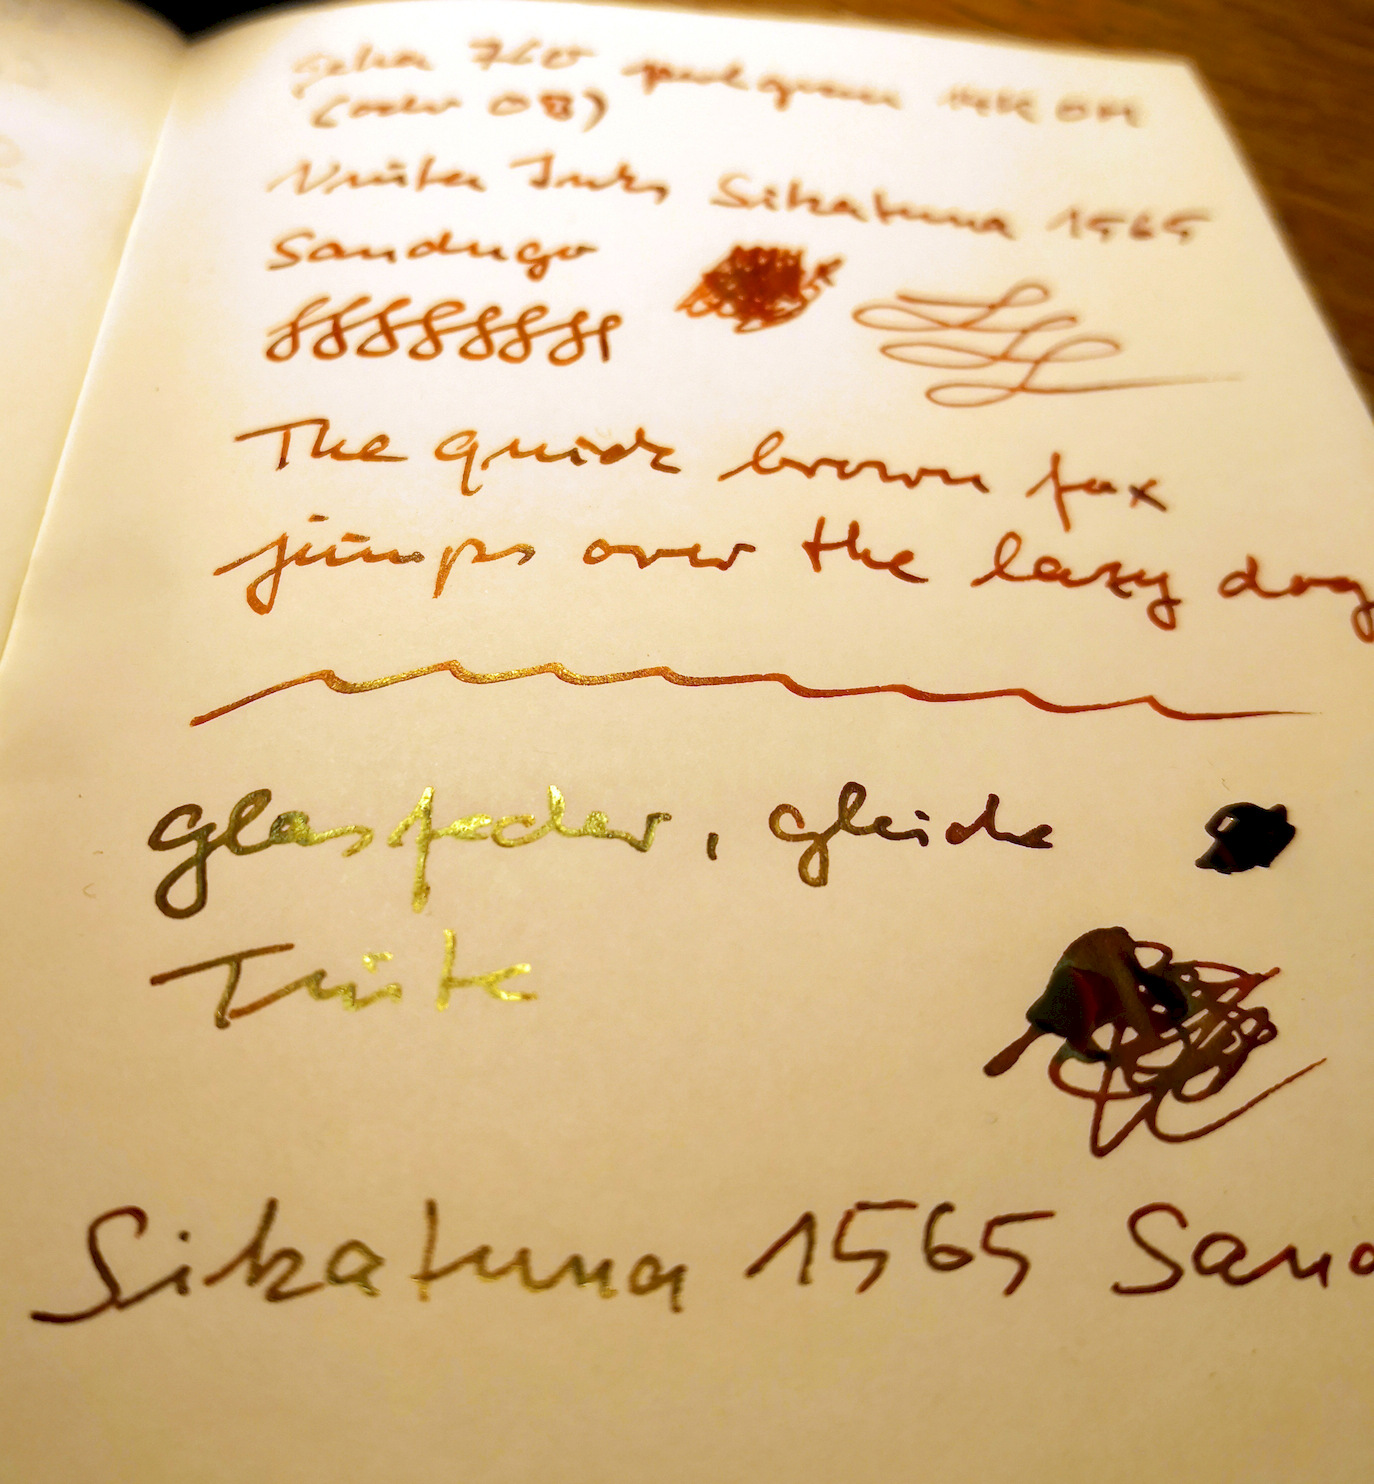 Geha 760
(oder OB)
Vinta Inks Sikatuna 1565
Sandugo
The quick brown fox
jumps over the lazy dog
glasfeder, gleiche
Tinte
Sikatuna 1565 Sand